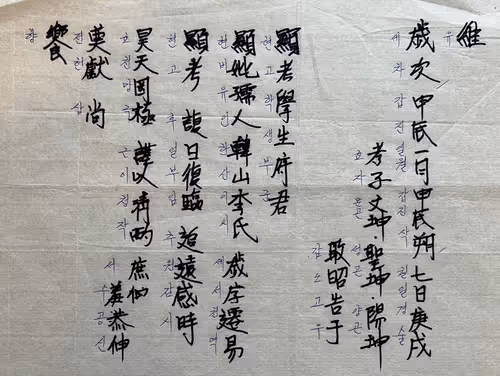 維
유
歲次 甲辰 一月 甲辰朔 七日 庚戌
세차 갑진 일월 갑진삭 칠일경술
孝子 文坤·聖坤·陽坤
효자 문곤 성곤 양곤
敢昭告于
감소고우
顯考學生府君
현고학생부군
顯妣孺人韓山李氏 歲序遷易
현비유인한산이씨 세서천역
顯考 諱日復臨 追遠感時
현고 휘일부림 추원감시
昊天罔極 謹以淸酌 庶羞恭伸
호천망극 근이청작 서수공신
奠獻 尙
전헌 상
饗
향